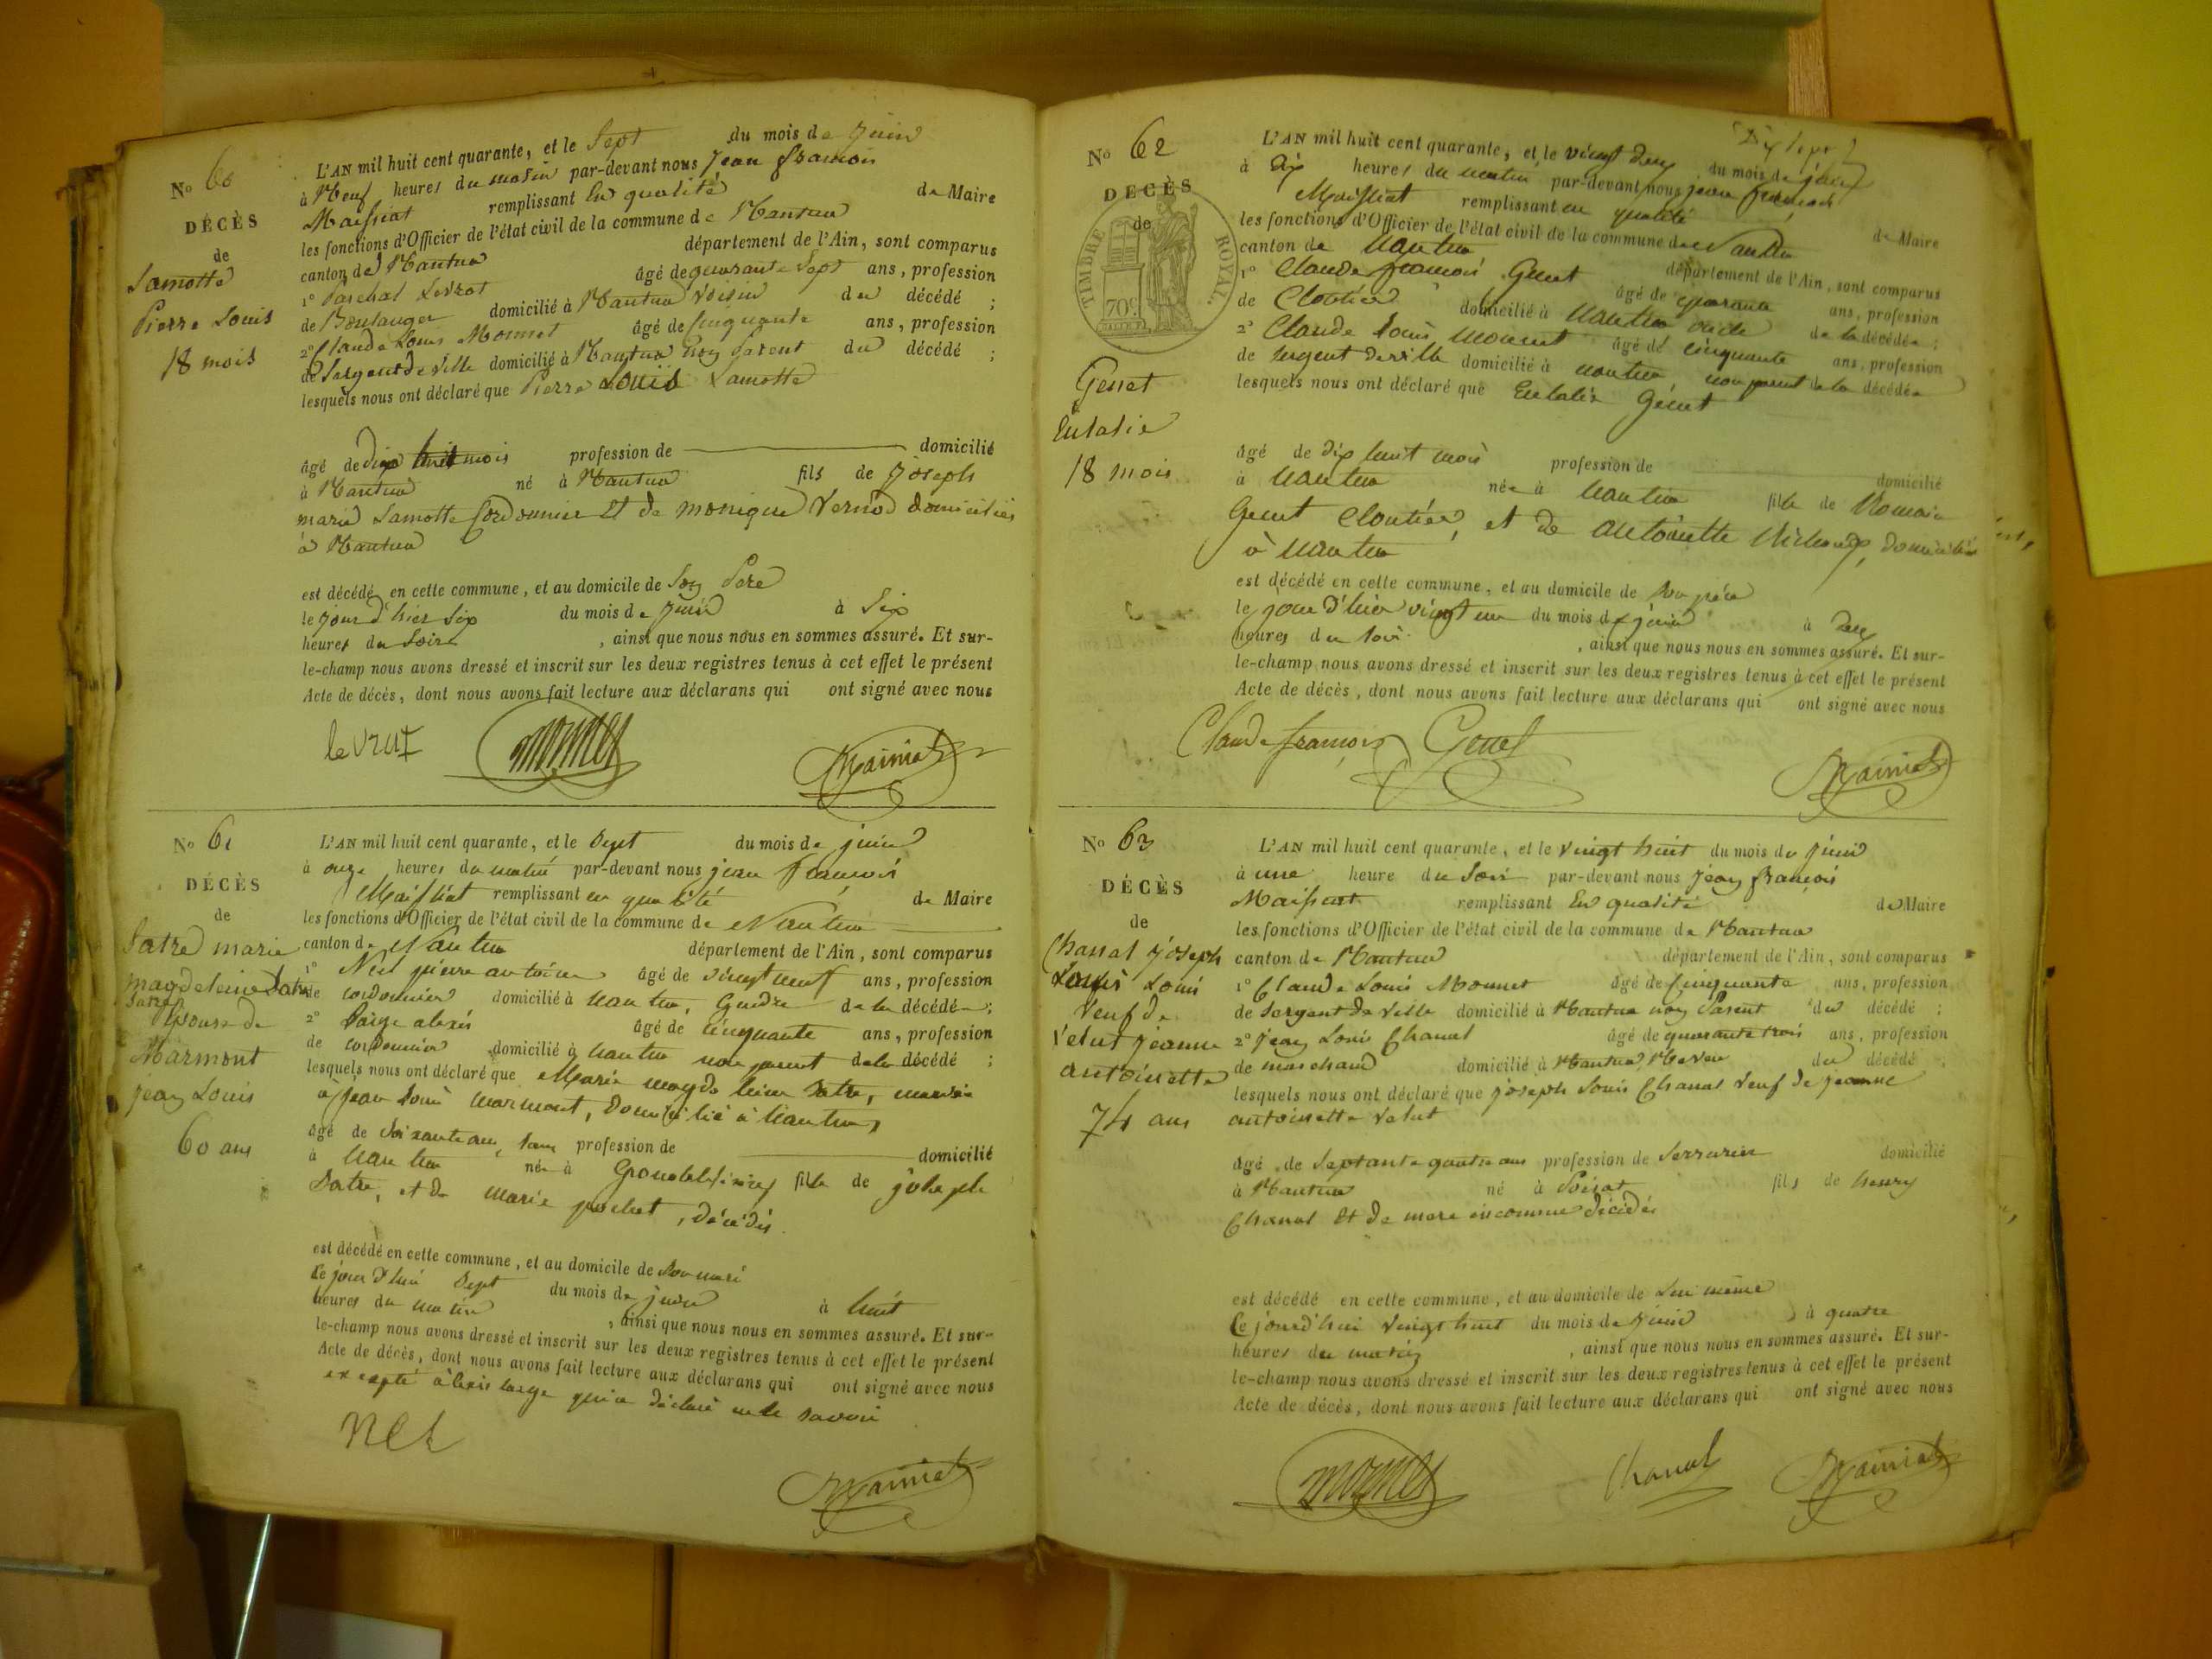 No 60
DÉCÈS
de
Lamotte
Pierre Louis
18 mois
L'AN mil huit cent quarante, et le Sept du mois de Juin
à Neuf heures du matin par-devant nous Jean françois
Maissiat remplissant En qualité de Maire
les fonctions d'Officier de l'état civil de la commune de Nantua
canton de Nantua département de l'Ain, sont comparus
1° Paschal âgé de quarante Sept ans, profession
de Boulanger domicilié à Nantua Voisin du décédé ;
2° Claude Louis Monnet âgé de Cinquante ans, profession
de Sergent de Ville domicilié à Nantua Non Parent du décédé ;
lesquels nous ont déclaré que Pierre Louis Lamotte
âgé de dix huit mois profession de domicilié
à Nantua né à Nantua fils de Joseph
marie Lamotte Cordonnier Et de monique Vernod domiciliés
à Nantua
est décédé en cette commune, et au domicile de Son Père
le jour d'hier Six du mois de Juin à Six
heures du Soir , ainsi que nous nous en sommes assuré. Et sur-
le-champ nous avons dressé et inscrit sur les deux registres tenus à cet effet le présent
Acte de décès, dont nous avons fait lecture aux déclarans qui ont signé avec nous
levrat monnet Maissiat
No 61
DÉCÈS
de
Satre marie
magdeleine Satre
Satre
Epouse de
Marmont
jean Louis
60 ans
L'AN mil huit cent quarante, et le Sept du mois de juin
à onze heures du matin par-devant nous jean françois
Maissiat remplissant en qualité de Maire
les fonctions d'Officier de l'état civil de la commune de Nantua
canton de Nantua département de l'Ain, sont comparus
1° pierre antoine âgé de vingt neuf ans, profession
de cordonnier domicilié à Nantua, Gendre de la décédée ;
2° Large alexis âgé de cinquante ans, profession
de cordonnier domicilié à Nantua non parent de la décédé ;
lesquels nous ont déclaré que Marie magdeleine Satre, mariée
à jean Louis Marmont, domicilié à Nantua,
âgé de Soixante ans, sans profession de domicilié
à Nantua née à Grenoble fille de joseph
Satre, et de marie pochet, décédés.
est décédé en cette commune, et au domicile de Son mari
le jour d'hui Sept du mois de juin à huit
heures du matin , ainsi que nous nous en sommes assuré. Et sur-
le-champ nous avons dressé et inscrit sur les deux registres tenus à cet effet le présent
Acte de décès, dont nous avons fait lecture aux déclarans qui ont signé avec nous
excepté alexis large qui a déclaré ne le savoir
Maissiat
Dix Sept
No 62
DÉCÈS
de
TIMBRE ROYAL.
70c.
Genet
Eulalie
18 mois
L'AN mil huit cent quarante, et le vingt deux du mois de juin
à dix heures du matin par-devant nous jean françois
Maissiat remplissant en qualité de Maire
les fonctions d'Officier de l'état civil de la commune de Nantua
canton de Nantua département de l'Ain, sont comparus
1° Claude françois Genet âgé de quarante ans, profession
de Cloutier domicilié à Nantua oncle de la décédée ;
2° Claude Louis Monnet âgé de cinquante ans, profession
de Sergent de ville domicilié à nantua, non parent de la décédée
lesquels nous ont déclaré que Eulalie Genet
âgé de dix huit mois profession de domicilié
à Nantua née à Nantua fille de Romain
Genet Cloutier, et de antoinette domiciliés
à Nantua
est décédé en cette commune, et au domicile de Son père
le jour d'hier vingt un du mois de juin à deux
heures du soir , ainsi que nous nous en sommes assuré. Et sur-
le-champ nous avons dressé et inscrit sur les deux registres tenus à cet effet le présent
Acte de décès, dont nous avons fait lecture aux déclarans qui ont signé avec nous
Claude françois Genet Maissiat
No 63
DÉCÈS
de
Chanal Joseph
Louis Louis
Veuf de
Velut jeanne
antoinette
74 ans
L'AN mil huit cent quarante, et le vingt huit du mois de juin
à une heure du Soir par-devant nous jean françois
Maissiat remplissant En qualité de Maire
les fonctions d'Officier de l'état civil de la commune de Nantua
canton de Nantua département de l'Ain, sont comparus
1° Claude Louis Monnet âgé de Cinquante ans, profession
de Sergent de Ville domicilié à Nantua non Parent du décédé ;
2° jean Louis Chanal âgé de quarante trois ans, profession
de marchand domicilié à Nantua, Neveu du décédé ;
lesquels nous ont déclaré que joseph Louis Chanal Veuf de jeanne
antoinette Velut
âgé de Septante quatre ans profession de Serrurier domicilié
à Nantua né à fils de henry
Chanal Et de mere inconnue décédés
est décédé en cette commune, et au domicile de Lui même
le jourd'hui vingt huit du mois de juin à quatre
heures du matin , ainsi que nous nous en sommes assuré. Et sur-
le-champ nous avons dressé et inscrit sur les deux registres tenus à cet effet le présent
Acte de décès, dont nous avons fait lecture aux déclarans qui ont signé avec nous
monnet Chanal Maissiat